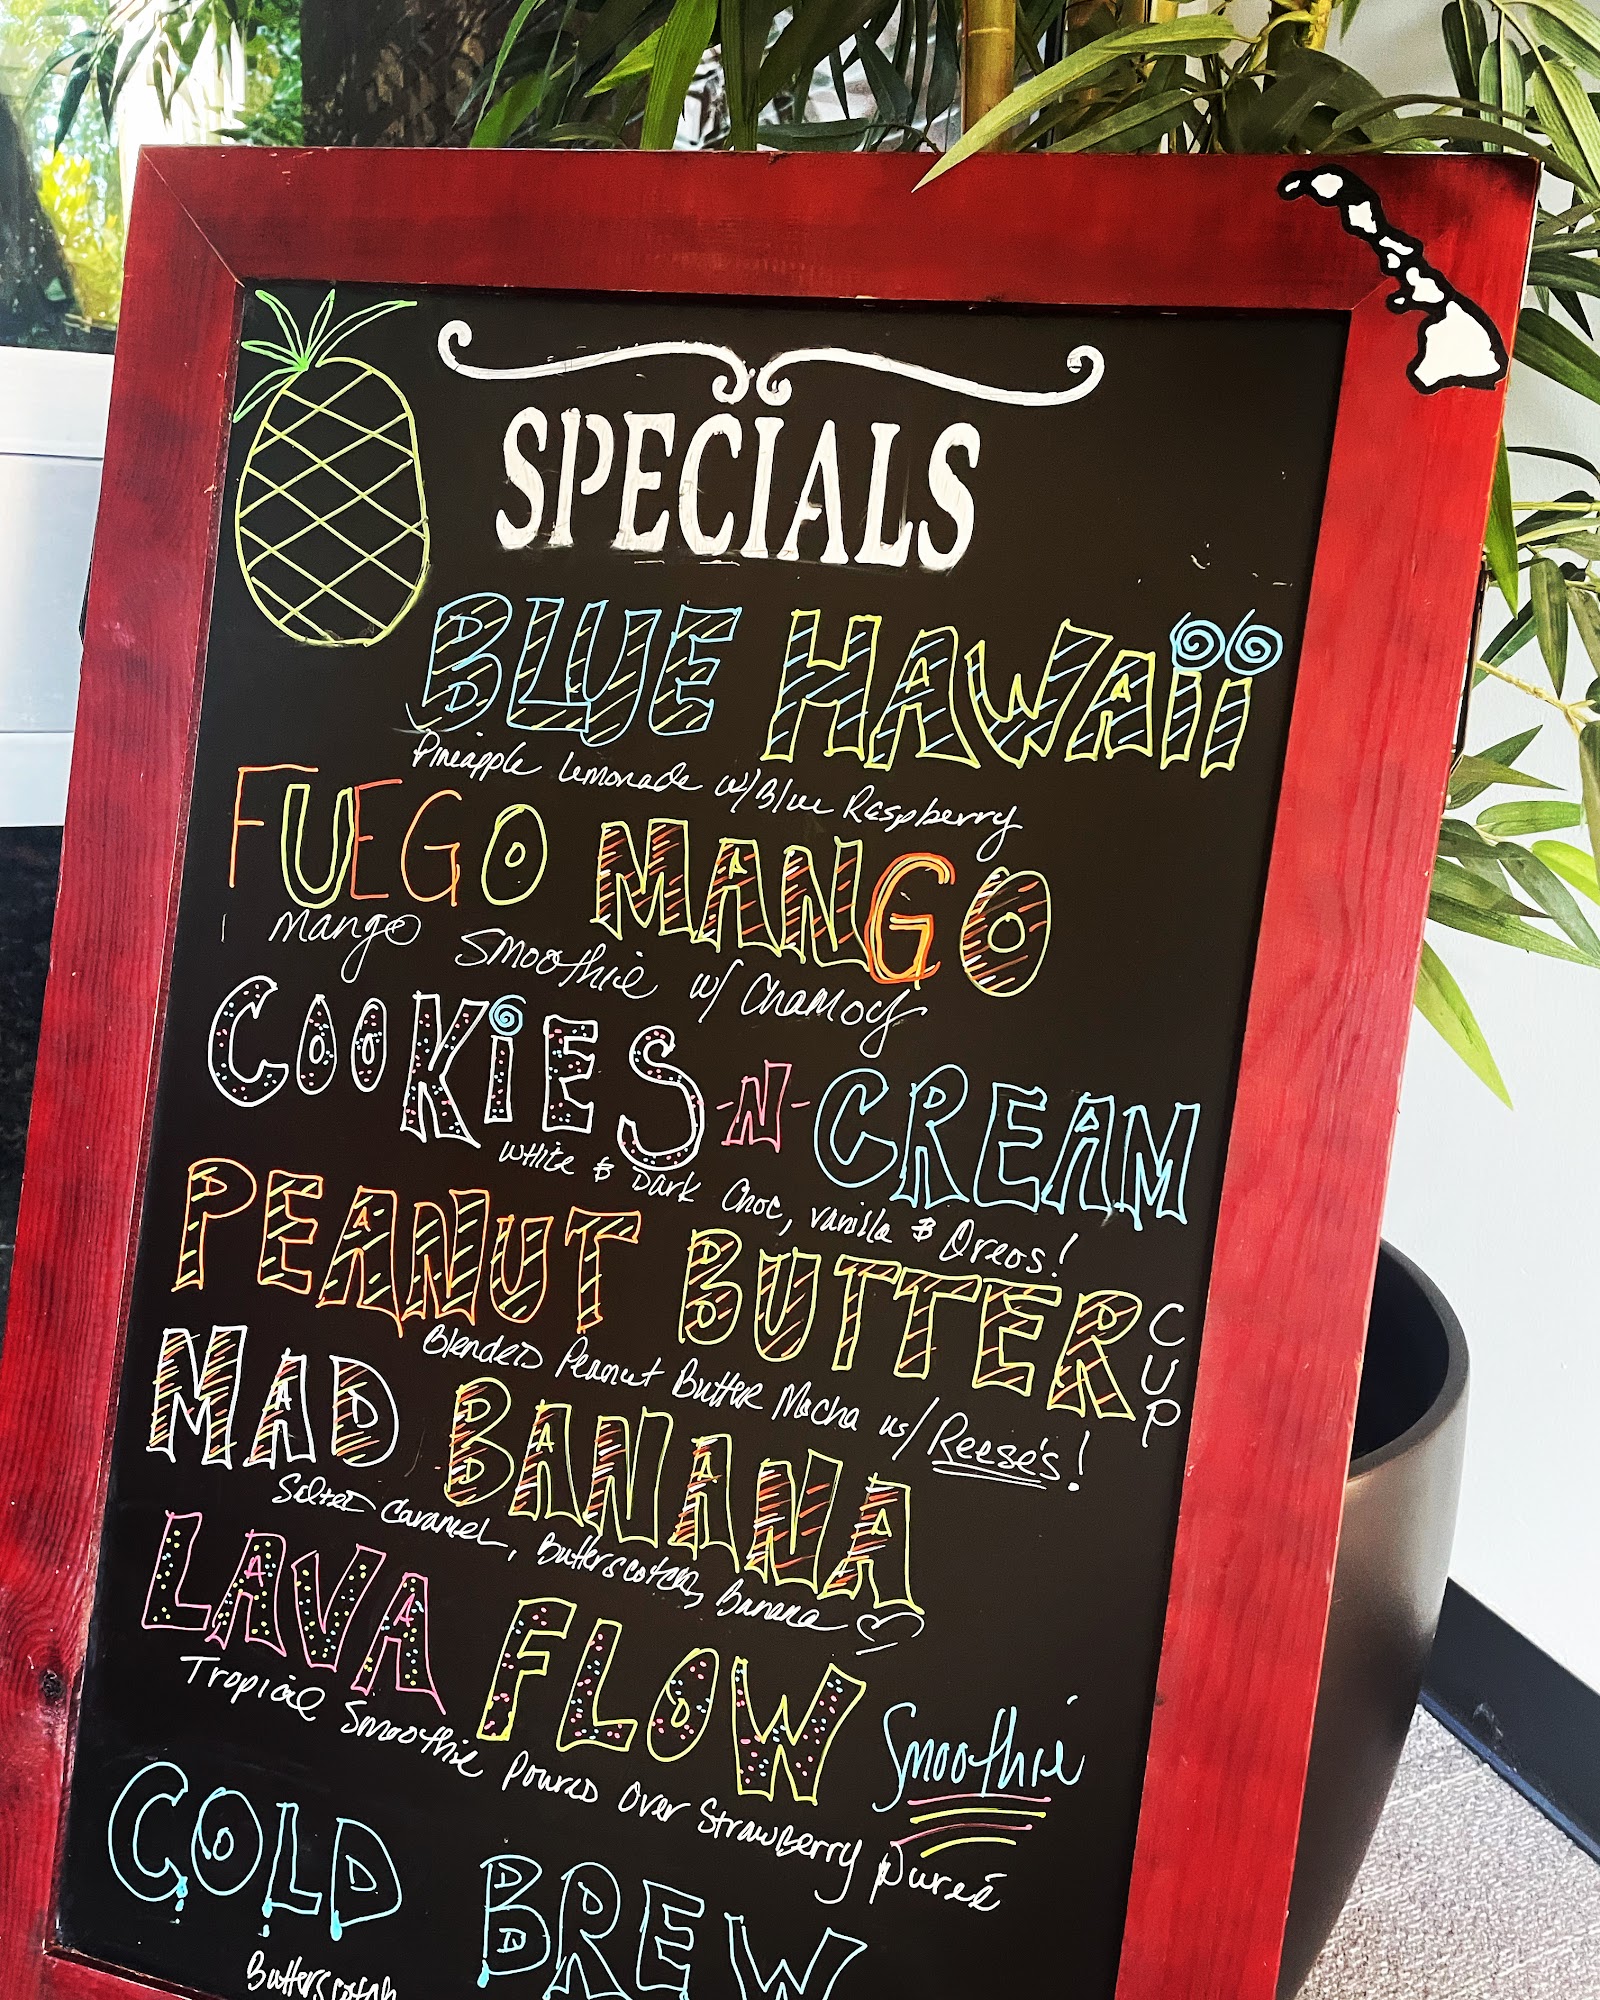 SPECiALS
BLUE HAWAii
Pineapple Lemonade w/ Blue Raspberry
FUEGO MANGO
Mango Smoothie w/ Chamoy
COOKiES -N- CREAM
White & Dark Choc, Vanilla & Oreos!
PEANUT BUTTER CUP
Blended Peanut Butter Mocha w/ Reese's!
MAD BANANA
Salted Caramel, Butterscotch, Banana
LAVA FLOW Smoothie
Tropical Smoothie Poured Over Strawberry Pureé
COLD BREW
Butterscotch